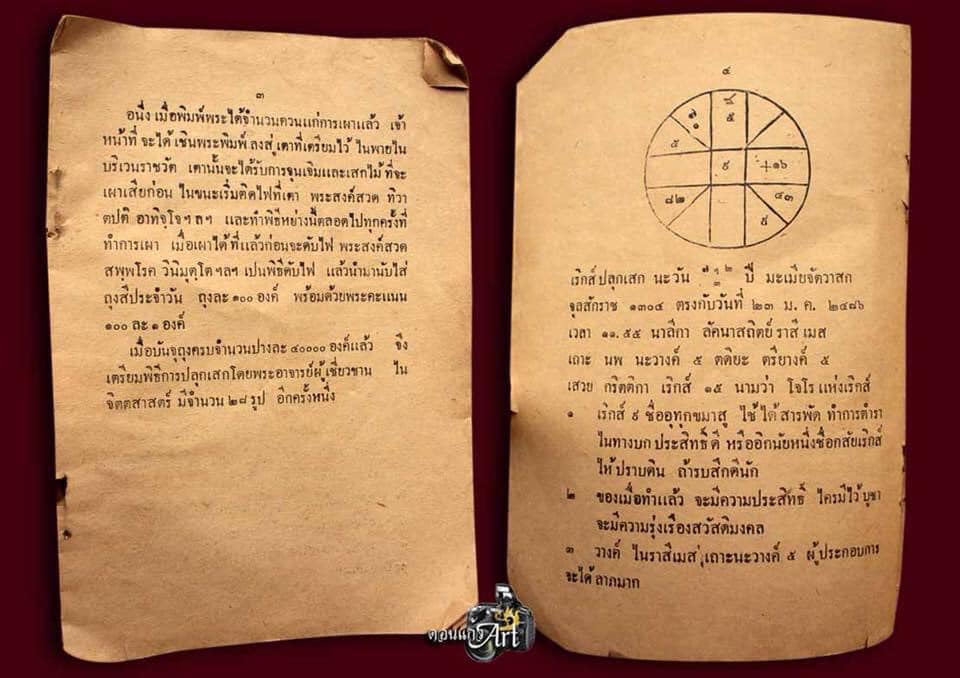 ๓
อนึ่ง เมื่อพิมพ์พระได้จำนวนควนแก่การเผาแล้ว เจ้า
หน้าที่ จะได้ เชินพระพิมพ์ ลงสู่ เตาที่เตรียมไว้ ในพายใน
บริเวนราชวัต เตานั้นจะได้รับการจุนเจิมและเสกไม้ที่จะ
เผาเสียก่อน ในขนะเริ่มติดไฟที่เตา พระสงค์สวด ทิวา
ตปติ อาทิจฺโจฯลฯ และทำพิธีหย่างนี้ตลอดไปทุกครั้งที่
ทำการเผา เมื่อเผาได้ที่แล้วก่อนจะดับไฟ พระสงค์สวด
สพฺพโรค วินิมุตฺโตฯลฯ เปนพิธีดับไฟ แล้วนำมานับใส่
ถุงสีประจำวัน ถุงละ ๑๐๐ องค์ พร้อมด้วยพระคะแนน
๑๐๐ ละ ๑ องค์
เมื่อบันจุถุงครบจำนวนปางละ ๔๐๐๐๐ องค์แล้ว จึง
เตรียมพิธีการปลุกเสกโดยพระอาจารย์ผู้เชี่ยวชาน ใน
จิตตสาสตร์ มีจำนวน ๒๘ รูป อีกครั้งหนึ่ง
๔
๕
๗
๑
๕
๙
๑๖
๘๒
๔๓
เริกส์ปลุกเสก นะวัน ปี มะเมียจัตวาสก
จุลสักราช ๑๓๐๔ ตรงกับวันที่ ๒๓ ม. ค. ๒๔๘๖
เวลา ๑๑.๕๕ นาลิกา ลัคนาสถิตย์ ราสี เมส
เถาะ นพ นะวางค์ ๕ ตติยะ ตรียางค์ ๕
เสวย กริตติกา เริกส์ ๑๕ นามว่า โจโร แห่งเริกส์
๑ เริกส์ ๙ ชื่ออุทุกขมาสุ ไช้ ได้ สารพัด ทำการตำรา
ในทางบก ประสิทธิ์ดี หรืออีกนัยหนึ่งชื่อกสัยเริกส์
ไห้ ปราบดิน ถ้ารบสึกดีนัก
๒ ของเมื่อทำแล้ว จะมีความประสิทธิ์ ใครมีไว้ บูชา
จะมีความรุ่งเรืองสวัสดิมงคล
๓ วางค์ ในราสีเมส เถาะนะวางค์ ๕ ผู้ประกอบการ
จะได้ ลาภมาก
Art